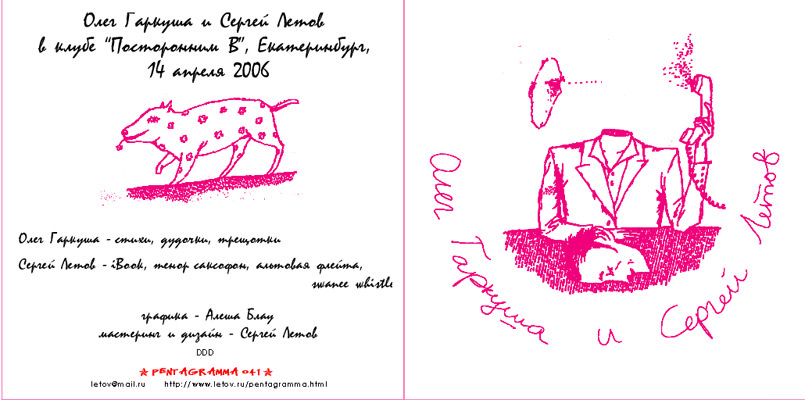 Олег Гаркуша и Сергей Летов
в клубе "Посторонним В", Екатеринбург,
14 апреля 2006
Олег Гаркуша - стихи, дудочки, трещотки
Сергей Летов - iBook, тенор саксофон, альтовая флейта,
swanee whistle
графика - Алеша Блау
мастеринг и дизайн - Сергей Летов
DDD
* PENTAGRAMMA 041 *
letov@mail.ru http://www.letov.ru/pentagramma.html
Олег Гаркуша и Сергей Летов